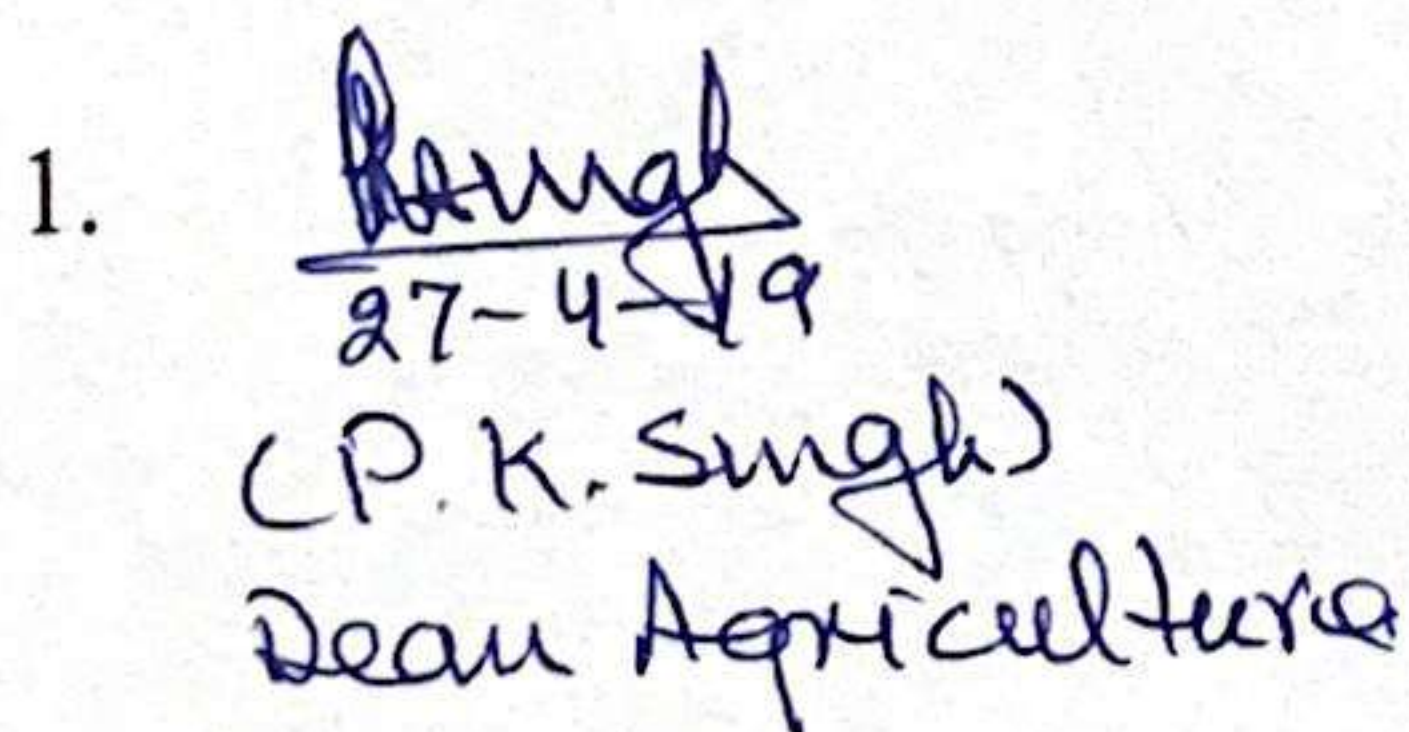 1.
27-4-19
(P.K. Singh)
Dean Agriculture